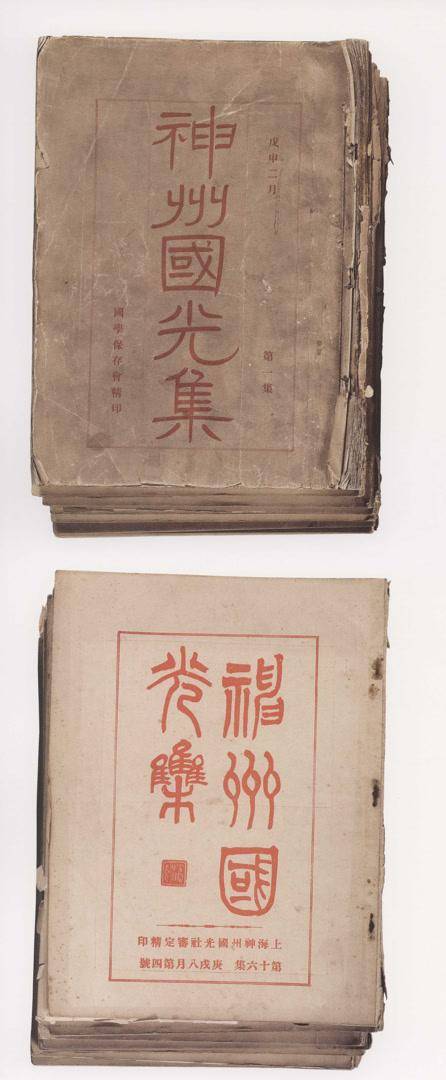 戊申二月
第一集
神州國光集
國學保存會精印
神州國
光集
上海神州國光社審定精印
第十六集 庚戌八月第四號